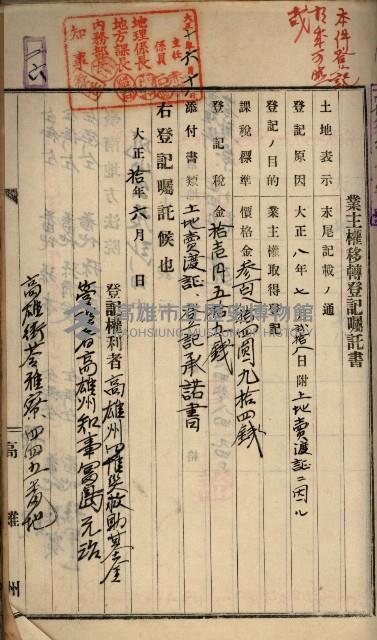 業主權移轉登記囑託書
土地表示 末尾記載ノ通
登記原因 大正八年七月 日附土地賣渡証ニ因ル
登記ノ目的 業主權取得登記
課稅標準 價格金參百 拾四圓九拾四錢
登記稅 金拾壱円五 錢
添付書類 土地賣渡証、登記承諾書
右登記囑託候也
大正拾年六月 日
登記權利者 高雄州罹災救助基金
管理者高雄州知事富島元治
高雄街苓雅寮四四五番地
高雄州
本件登記
大正十年六月
主任
係員
地理係長
地方課長
內務部長
知事
一六
高雄市立歷史博物館
KAOHSIUNG MUSEUM OF HISTORY